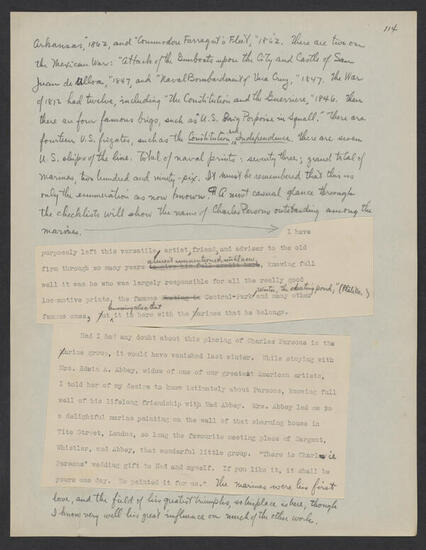 114
Arkansas," 1862, and "Commodore Farragut's Fleet," 1862. There are two on
the Mexican War: "Attack of the Gunboats upon the City and Castle of San
Juan de Ulloa," 1847, and "Naval Bombardment of Vera Cruz," 1847. The War
of 1812 had twelve, including "The Constitution and the Guerriere," 1846. Then
there are four famous brigs, such as "U.S. Brig Porpoise in Squall." There are
fourteen U.S. frigates, such as the Constitution and Independence. There are seven
U.S. ships of the line. Total of naval prints: seventy three; grand total of
marines, two hundred and ninety-six. It must be remembered that this is
only the enumeration as now known. ¶ A most casual glance through
the checklists will show the name of Charles Parsons outstanding among the
marines.
I have
purposely left this versatile artist, friend, and adviser to the old
almost unmentioned until now,
firm through so many years to give him full credit here, knowing full
well it was he who was largely responsible for all the really good
winter, the skating pond," (
locomotive prints, the famous Central-Park and many other
famous ones, but it is here with the marines that he belongs.
Had I had any doubt about this placing of Charles Parsons in the
marine group, it would have vanished last winter. While staying with
Mrs. Edwin A. Abbey, widow of one of our greatest American artists,
I told her of my desire to know intimately about Parsons, knowing full
well of his lifelong friendship with Ned Abbey. Mrs. Abbey led me to
a delightful marine painting on the wall of that charming house in
Tite Street, London, so long the favourite meeting place of Sargent,
Whistler, and Abbey, that wonderful little group. "There is Charlie
Parsons' wedding gift to Ned and myself. If you like it, it shall be
yours one day. He painted it for us." The marines were his first
love, and the field of his greatest triumphs, so his place is here, though
I know very well his great influence on much of the other work.